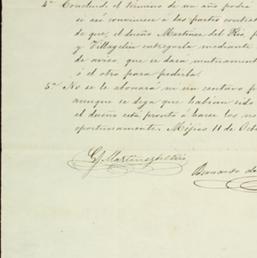 4ª Concluido el término de un año podrá
si así conviniere a las partes contrat
to que, el dueño Martinez del Rio
y Villagelin entregarla mediante
de aviso, que se dará mutuamente
ó el otro para pedirla.
5ª No se le abonará ni un centavo
aunque se diga que habian sido
el dueño está pronto á hacer los
oportunamente. Méjico 11 de Octu
Martinez del Rio
Bernardo de